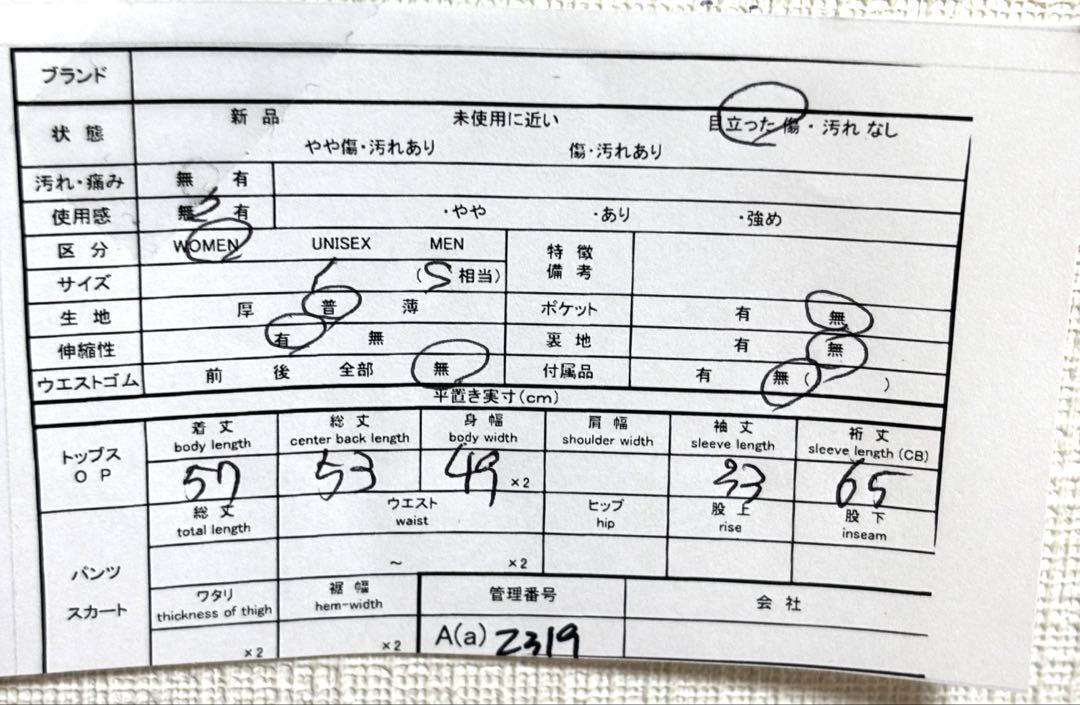 ブランド
状態 新品 未使用に近い 目立った傷・汚れなし
やや傷・汚れあり 傷・汚れあり
汚れ・痛み 無 有
使用感 無 有 ・やや ・あり ・強め
区分 WOMEN UNISEX MEN 特徴備考
サイズ (S相当)
生地 厚 普 薄 ポケット 有 無
伸縮性 有 無 裏地 有 無
ウエストゴム 前 後 全部 無 付属品 有 無( )
平置き実寸(cm)
トップス OP
着丈 総丈 身幅 肩幅 袖丈 裄丈
body length center back length body width shoulder width sleeve length sleeve length (CB)
57 53 49 ×2 33 65
パンツ スカート
総丈 ウエスト ヒップ 股上 股下
total length waist hip rise inseam
~ ×2
ワタリ 裾幅 管理番号 会社
thickness of thigh hem-width
×2 ×2 A(a) 2319